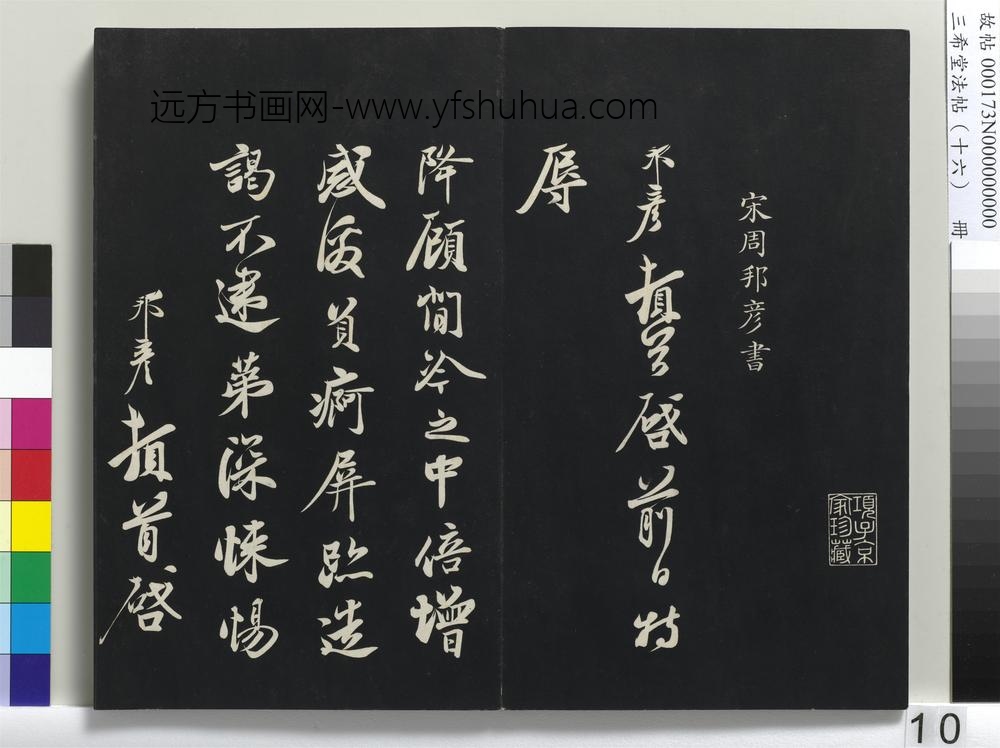 宋周邦彦書
項子京
家珍藏
邦彦頓首啓前日特
辱
降顧閒冷之中倍增
感激負痾屏跡造
謁不逮第深悚惕
邦彦頓首啓
远方书画网-www.yfshuhua.com
故帖 000173N000000000
三希堂法帖（十六） 冊
10